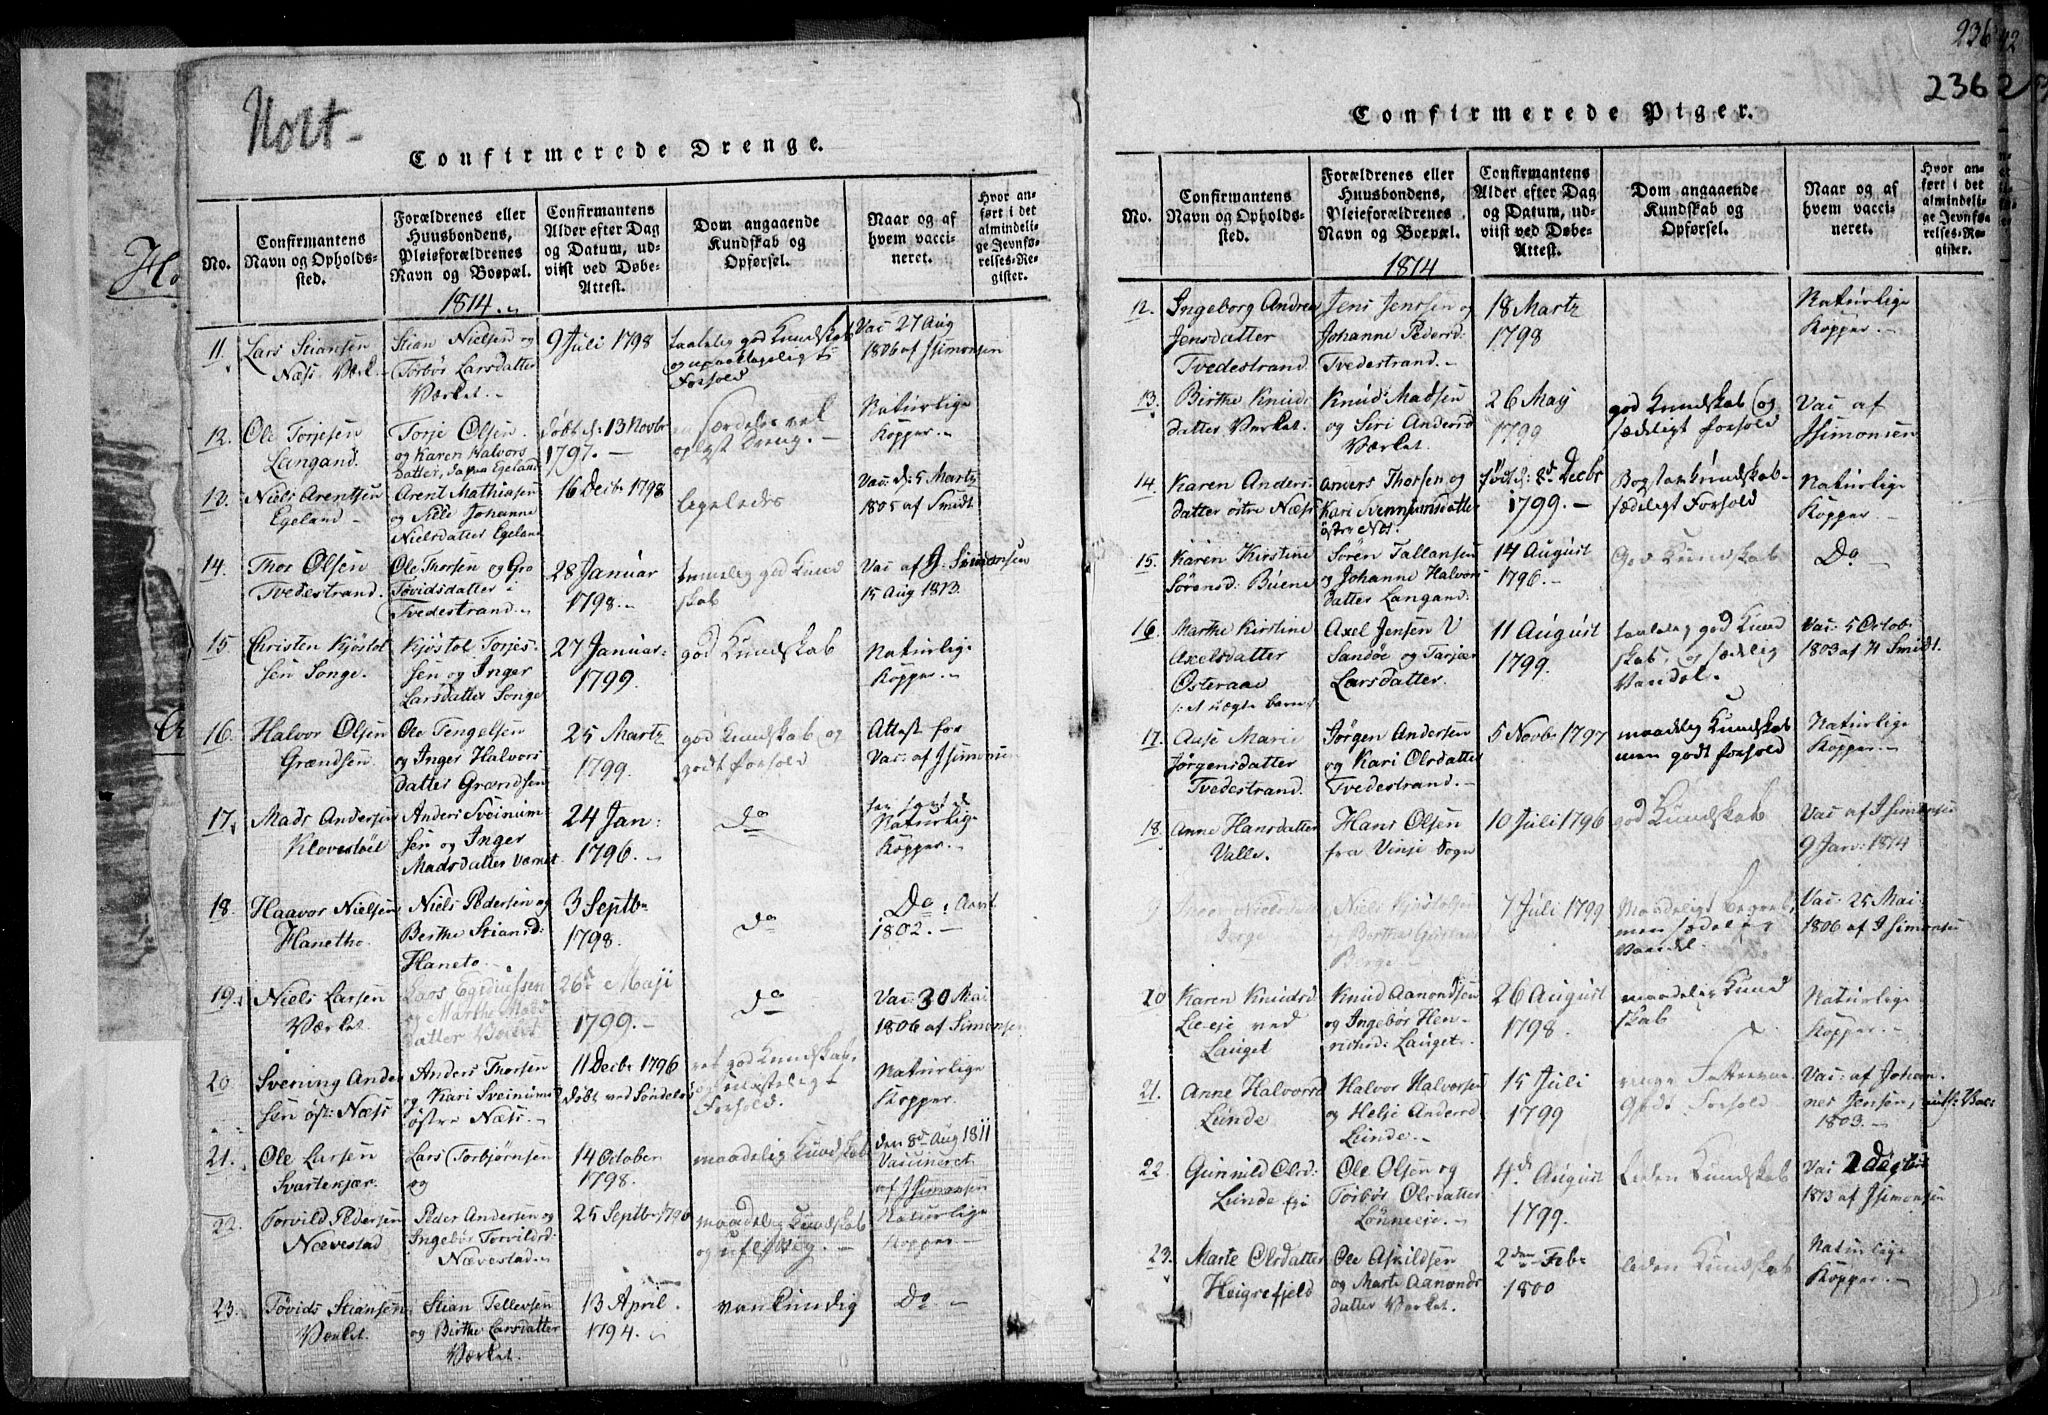 Holt-
Confirmerede Drenge.
No.
Confirmantens
Navn og Opholds-
sted.
Forældrenes eller
Huusbondens,
Pleieforældrenes
Navn og Boepæl.
1814.
Confirmantens
Alder efter Dag
og Datum, ud-
viist ved Døbe-
Attest.
Dom angaaende
Kundskab og
Opførsel.
Naar og af
hvem vacci-
neret.
Hvor an-
ført i det
almindeli-
ge Jevnfø-
relses-Re-
gister.
11. Lars Stiansen
Næs Værk.
Stian Nielsen og
Torbor Larsdatter
Værket.
9 Juli 1798
taalelig god Kundskab
og upaaklageligt
Forhold
Vac: 27 Aug
1806 af J Simonsen
12. Ole Torjesen
Langand.
Torje Olsen
og Karen Halvors
datter, da paa Egeland
døbt d: 13 Novbr
1797.
en særdeles vel
oplyst Dreng.
Naturlige
Kopper.
13. Niels Arentsen
Egeland
Arent Mathiasen
og Johanne
Nielsdatter Egeland
16 Decbr 1798
ligeledes
Vac: d: 5 Martz
1805 af Smidt
14. Thor Olsen
Tvedestrand.
Ole Thorsen og Gro
Tovidsdatter
Tvedestrand.
28 Januar
1798.
temelig god Kund
skab
Vac af J. Simonsen
15 Aug 1813.
15 Christen Kjøstol
sen Songe.
Kjøstol Torjes
sen og Inger
Larsdatter Songe
27 Januar
1799.
god Kundskab
Naturlige
Kopper.
16. Halvor Olsen
Grændsen.
Ole Tengelsen
og Inger Halvors
datter Grændsen
25 Martz
1799.
god Kundskab og
godt Forhold
Attest for
Vac: af J Simonsen
17. Mads Andersen
Klovestøl
Anders Sveinum
sen og Inger
Madsdatter Værket
24 Jan:
1796.
do
Naturlige
Kopper.
18. Haavor Nielsen
Hanetho.
Niels Pedersen og
Berthe Stiansd:
Haneto.
3 Septbr
1798.
do
Do
1802.
19. Niels Larsen
Værket
Lars Egidiussen
og Marthe Mads
datter Værket
26d Maji
1799.
do
Vac: 30 Mai
1806 af Simonsen
20. Svening Ander
sen øst: Næss
Anders Thorsen
og Kari Sveinums
østre Næs.
11 Decbr 1796
Døbt ved Søndeløv
ret god Kundskab
Forhold.
Naturlige
Kopper.
21. Ole Larsen
Svartekjær.
Lars Torbjørnsen
og
14 October
1798.
maadelig Kundskab
den 8d Aug 1811
Vaccineret
af J Simonsen
22. Torvild Pedersen
Nævestad
Peder Andersen og
Ingebor Torvildsd:
Nævestad.
25 Septbr 1796
maadelig Kundskab
og uflittig.
Naturlige
Kopper
23. Tovids Stiansen
Værket.
Stian Tellevsen
og Birthe Larsdatter
Værket.
13 April
1794.
vankundig
Do
236
236
Confirmerede Piger.
No.
Confirmantens
Navn og Opholds-
sted.
Forældrenes eller
Huusbondens,
Pleieforældrenes
Navn og Boepæl.
1814
Confirmantens
Alder efter Dag
og Datum, ud-
viist ved Døbe-
Attest.
Dom angaaende
Kundskab og
Opførsel.
Naar og af
hvem vacci-
neret.
Hvor an-
ført i det
almindeli-
ge Jevnfø-
relses-Re-
gister.
12. Ingeborg Andrea
Jensdatter
Tvedestrand.
Jens Jenssen og
Johanne Pedersd:
Tvedestrand.
18 Martz
1798
Naturlige
Kopper.
13. Birthe Knuds
datter Værket.
Knud Madsen
og Siri Andersd
Værket.
26 May
1799
god Kundskab og
sædeligt Forhold
Vac af
J Simonsen
14. Karen Anders
datter østre Næss
Anders Thorsen og
Kari Svennumsdatter
østre Næs
født d: 8d Decbr
1799.
sædeligt Forhold
Naturlige
Kopper.
15. Karen Kirstine
Sørensd: Buene
Søren Tallaksen
og Johanne Halvors
datter Langand:
14 August
1796.
God Kundskab
Do
16. Marthe Kirstine
Axelsdatter
Osteraae
: et uægte barn
Axel Jensen
Sandøe og Tarjær
Larsdatter.
11 August
1799.
taalelig god Kund
skab, og sædelig
Vandel.
Vac: 5 Octob:
1803 af H Smidt.
17. Aase Marie
Jørgensdatter
Tvedestrand.
Jørgen Andersen
og Kari Olsdatter
Tvedestrand.
5 Novbr 1797
maadelig Kundskab
men godt Forhold
Naturlige
Kopper.
18. Anne Hansdatter
Valle.
Hans Olsen
fra Vinje Sogn
10 Juli 1796
god Kundskab
Vac af J Simonsen
9 Jan: 1814
Nielsdatter
Berge
Niels Kjøstolsen
og Berthe
Berge
7 Juli 1799
Maadeligt begreb,
men sædelig
Vandel.
Vac: 25 Mai
1806 af J Simonsen
20 Karen Knudsd
Lie-eje ved
Lauget
Knud Aanondsen
og Ingebor Hen-
richsd: Lauget.
26 August
1798.
maadelig Kund
skab
Naturlige
Kopper.
21. Anne Halvorsd
Lunde
Halvor Halvorsen
og Helje Andersd
Lunde.
15 Juli
1799
Godt Forhold
Vac: af Johan-
nes Jensen,
1803.
22. Gunnild Olsd:
Lunde eje
Ole Olsen og
Torbor Olsdatter
Lønneeje.
4d August
1799.
Liden Kundskab
Vac
1813 af J Simonsen
23. Marte Olsdatter
Heigrefjeld
Ole Askildsen
og Marte Aanonds
datter Værket.
2den Febr
1800
liden Kundskab
Naturlige
Kopper.